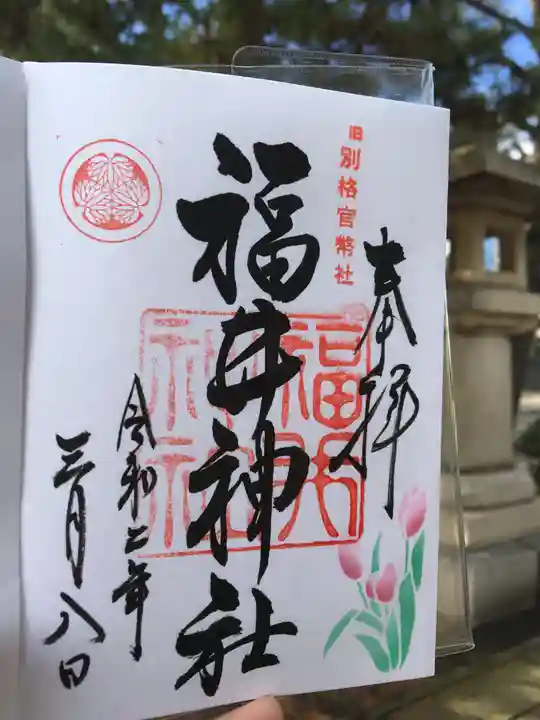 旧別格官幣社
奉拝
福井神社
福井神社
令和二年
三月八日